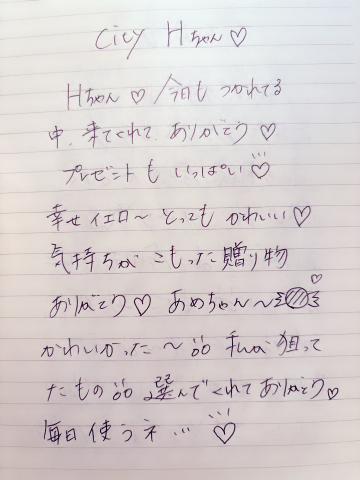 City Hちゃん♡
Hちゃん♡今日も つかれてる
中、来てくれて ありがとう♡
プレゼントも いっぱい♡
幸せイエロ〜 とっても かわいい♡
気持ちが こもった贈り物
ありがとう♡ あめちゃん〜
かわいかった〜品 私が 狙って
たもの品 選んでくれてありがとう♡
毎日 使うネ…♡